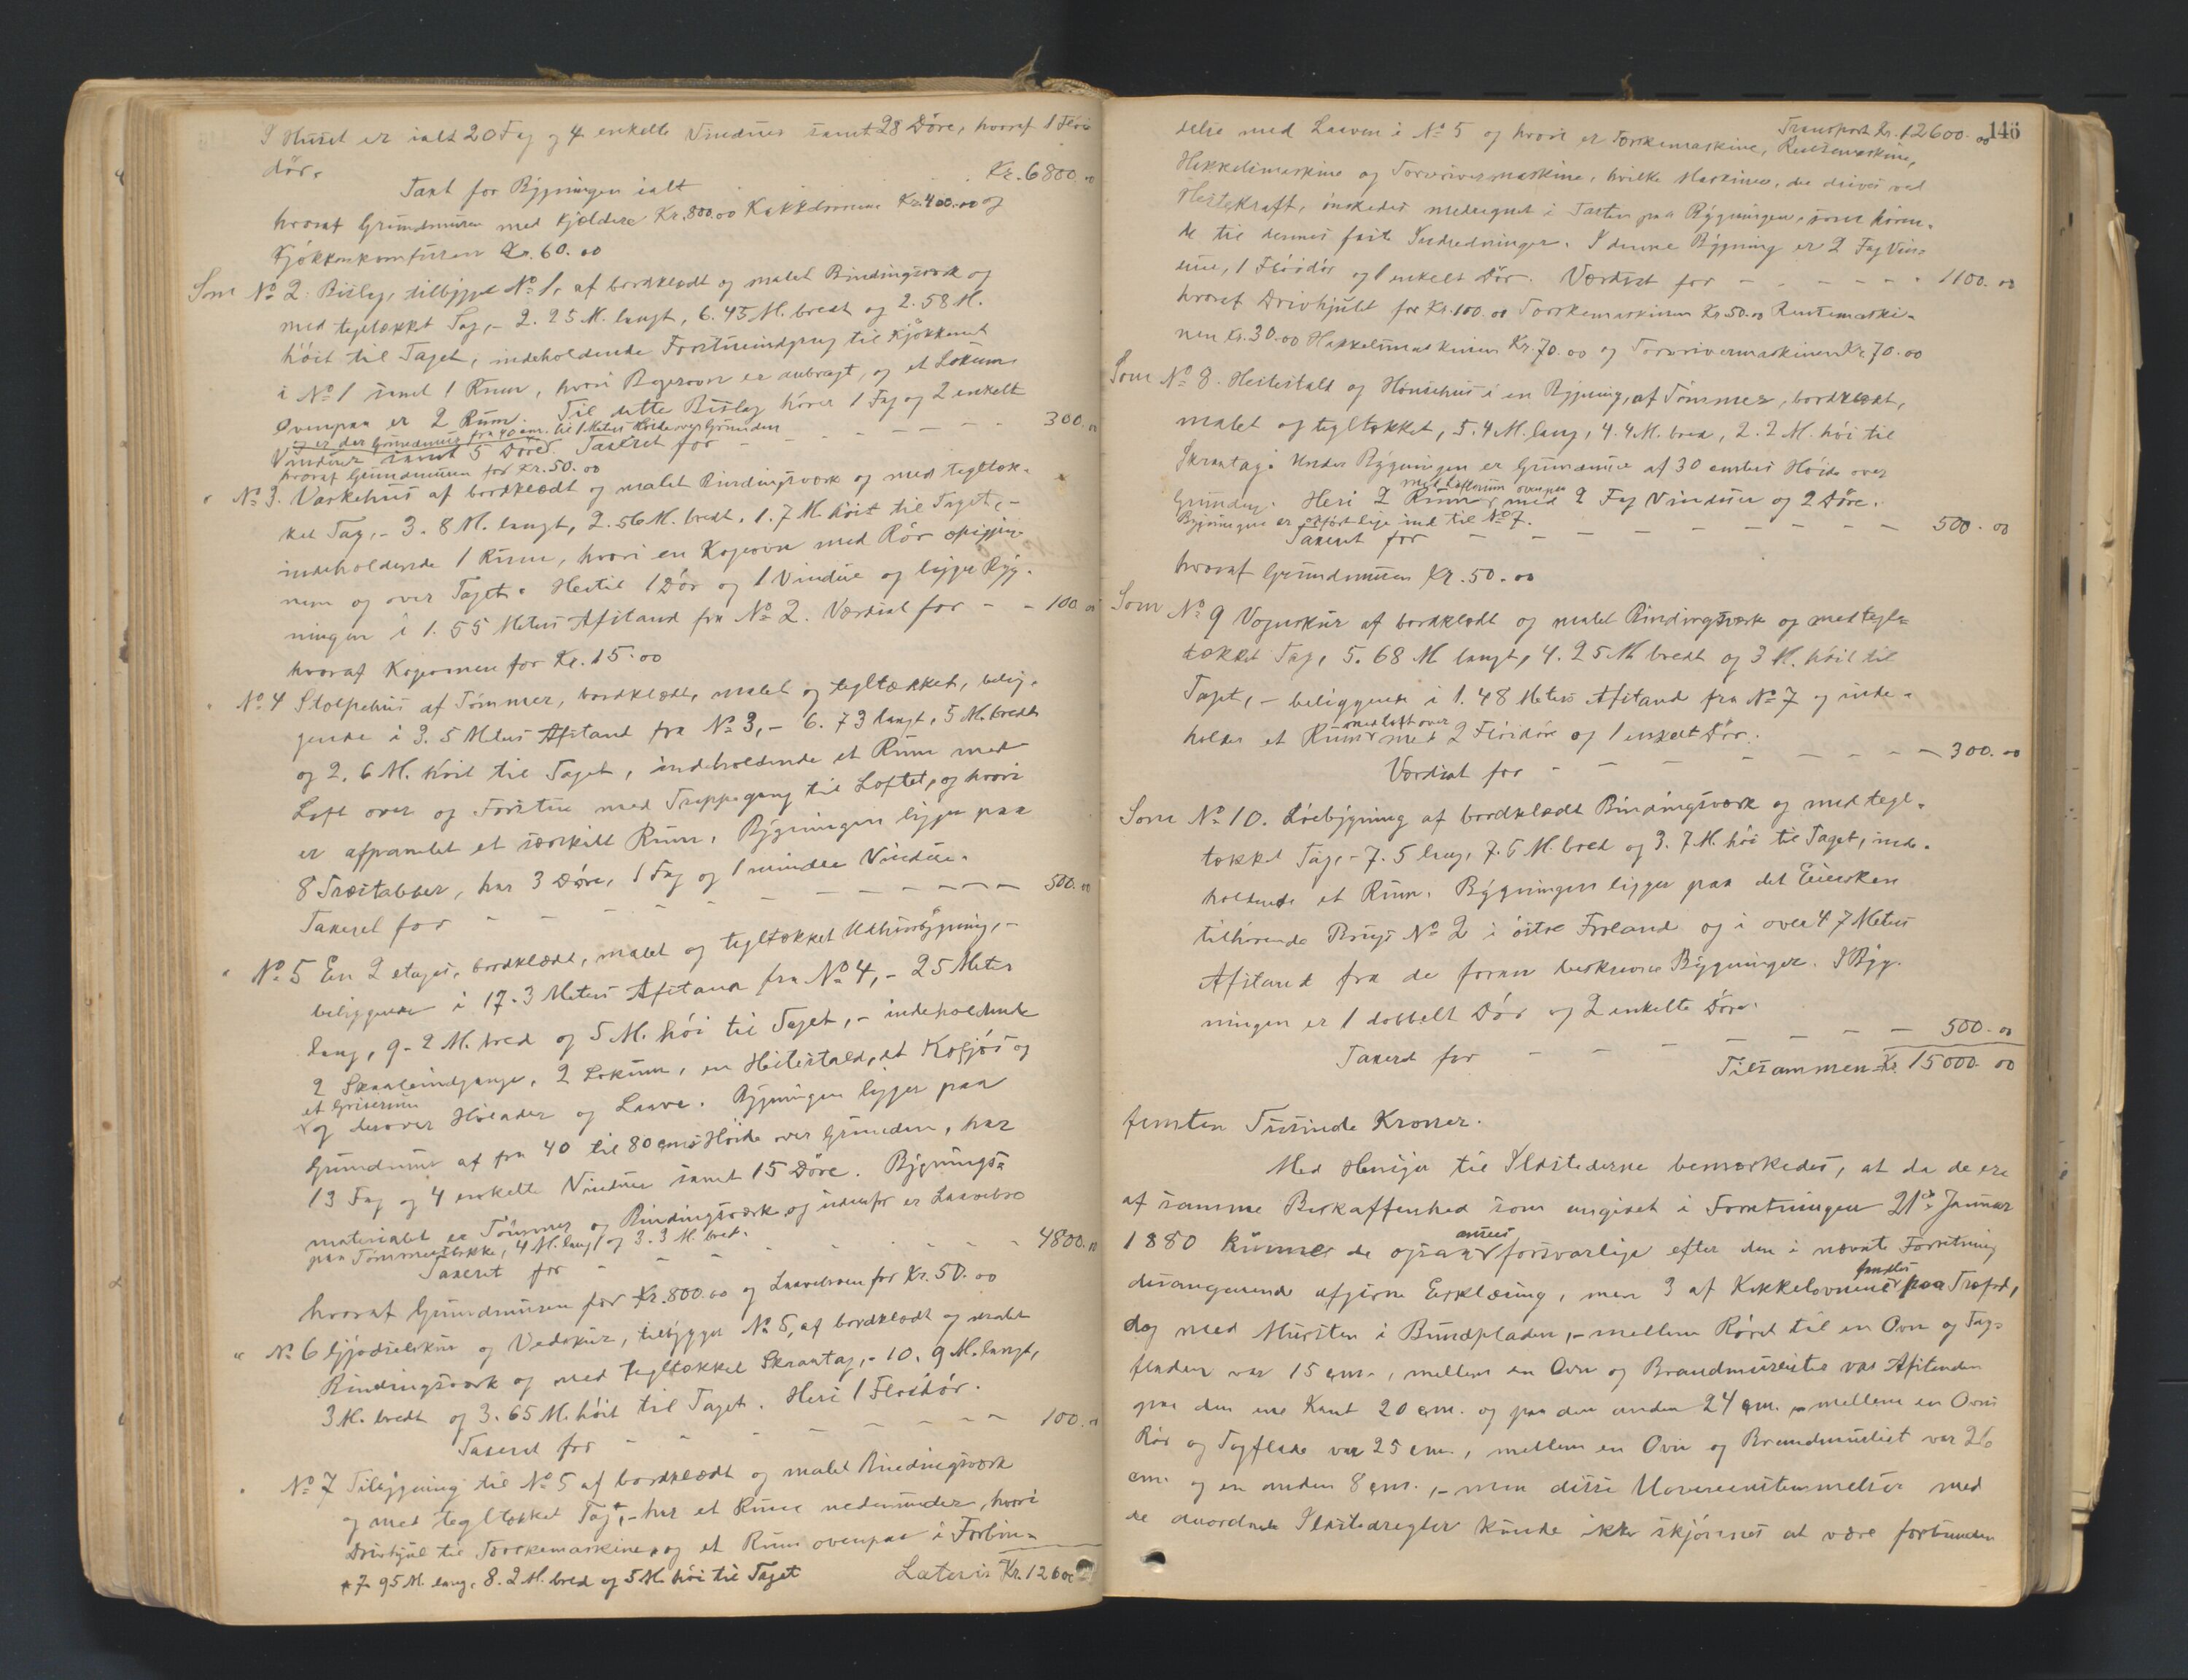 I Huset er ialt 20 Fag og 4 enkelte Vinduer samt 28 Döre, hvoraf 1 Flöi
dör.
Taxt for Bygningen ialt Kr. 6800.00
hvoraf Grundmuren med Kjældere Kr. 800.00 Kakkelovnene Kr. 400.00 og
Kjökkenkomfuren Kr. 60.00
Som No 2. Bislag, tilbygget No 1, af bordklædt og malet Bindingsværk og
med tegltækket Tag, - 2.25 M. langt, 6.45 M. bredt og 2.58 M.
höit til Taget, indeholdende Forstueindgang til Kjökkenet
i No 1 samt 1 Rum, hvori Bagerovn er anbragt, og et Lokum.
Ovenpaa er 2 Rum. Til dette Bislag hörer 1 Fag og 2 enkelt
og er der Grundmur fra 40 cm. til 1 Meters Höide over Grunden
Vinduer samt 5 Döre. Taxeret for - - - - - - 300.00
hvoraf Grundmuren for Kr. 50.00
" No 3. Vaskehus af bordklædt og malet Bindingsværk og med tegltæk-
ket Tag, - 3.8 M. langt, 2.56 M. bredt, 1.7 M. höit til Taget, -
indeholdende 1 Rum, hvori en Kogeovn med Rör opigjen-
nem og over Taget. Hertil 1 Dör og 1 Vindue og ligger Byg-
ningen i 1.55 Meters Afstand fra No 2. Værdsat for - - 100.00
hvoraf Kogeovnen for Kr. 15.00
" No 4 Stolpehus af Tömmer, bordklædt, malet og tegltækket, belig-
gende i 3.5 Meters Afstand fra No 3, - 6.73 langt, 5 M. bredt
og 2.6 M. höit til Taget, indeholdende et Rum med
Loft over og Forstue med Trappegang til Loftet, og hvori
er afpanelet et særskilt Rum. Bygningen ligger paa
8 Træstabber, har 3 Döre, 1 Fag og 1 mindre Vindue.
Taxeret for - - - - - - - - 500.00
" No 5 En 2 etages, bordklædt, malet og tegltækket Udhusbygning, -
beliggende i 17.3 Meters Afstand fra No 4, - 25 Meter
lang, 9.2 M. bred og 5 M. höi til Taget, - indeholdende
2 Skaaleindgange, 2 Lokum, en Hestestald, et Kofjös og
et Griserum
og derover Hölader og Laave. Bygningen ligger paa
Grundmur af fra 40 til 80 cms Höide over Grunden, har
13 Fag og 4 enkelte Vinduer samt 15 Döre. Bygnings-
materialet er Tömmer og Bindingsværk og udenfor er Laavebro
paa Tömmerstokke, 4 M. lang og 3.3 M. bred.
Taxeret for - - - - - - - 4800.00
hvoraf Grundmuren for Kr. 800.00 og Laavebroen for Kr. 50.00
" No 6 Gjödselskur og Vedskur, tilbygget No 5, af bordklædt og malet
Bindingsværk og med tegltækket Skraatag, - 10.9 M. langt,
3 M. bredt og 3.65 M. höit til Taget. Heri 1 Flöidör.
Taxeret for - - - - - - - 100.00
" No 7 Tilbygning til No 5 af bordklædt og malet Bindingsværk
og med tegltækket Tag, + - har et Rum nedenunder, hvori
Drivhjul til Tærskemaskine, og et Rum ovenpaa i Forbin-
+ 7.95 M. lang, 8.2 M. bred og 5 M. höi til Taget
Lateris Kr. 12600
146
Transport Kr. 12600.00
delse med Laaven i No 5 og hvori er Tærskemaskine, Rensemaskine,
Hakkelsmaskine og Torvrivermaskine, hvilke Maskiner, der drives ved
Hestekraft, önskedes medregnet i Taxten paa Bygningen, som hören-
de til dennes faste Indredninger. I denne Bygning er 2 Fag Vin-
duer, 1 Flöidör og 1 enkelt Dör. Værdsat for - - - - - 1100.00
hvoraf Drivhjulet for Kr. 100.00 Tærskemaskinen Kr. 50.00 Rensemaski-
nen Kr. 30.00 Hakkelsmaskinen Kr. 70.00 og Torvrivermaskinen Kr. 70.00
Som No 8. Hestestald og Hönsehus i en Bygning, af Tömmer, bordklædt,
malet og tegltækket, 5.4 M. lang, 4.4 M. bred, 2.2 M. höi til
Skraatag. Under Bygningen er Grundmur af 30 cmters Höide over
Grunden. Heri 2 Rum, med Lofterum ovenpaa med 2 Fag Vinduer og 2 Döre.
Bygningen er opfört lige ind til No 7.
Taxeret for - - - - - - - 500.00
hvoraf Grundmuren Kr. 50.00
Som No 9 Vognskur af bordklædt og malet Bindingsværk og med tegl-
tækket Tag, 5.68 M langt, 4.25 M bredt og 3 M. höit til
Taget, - beliggende i 1.48 Meters Afstand fra No 7 og inde-
holder et Rum med Loft over med 2 Flöidöre og 1 enkelt Dör.
Værdsat for - - - - - - - 300.00
Som No 10. Löebygning af bordklædt Bindingsværk og med tegl-
tækket Tag, - 7.5 lang, 7.5 M. bred og 3.7 M. höi til Taget, inde-
holdende et Rum. Bygningen ligger paa det Eiersken
tilhörende Brugs No 2 i östre Froland og i over 47 Meters
Afstand fra de foran beskrevne Bygninger. I Byg-
ningen er 1 dobbelt Dör og 2 enkelte Döre.
Taxeret for - - - - - - - 500.00
Tilsammen Kr. 15000.00
femten Tusinde Kroner.
Med Hensyn til Ildstederne bemærkedes, at da de ere
af samme Beskaffenhed som angivet i Forretningen 21de Januar
1880 kunne de ogsaa ansees forsvarlige efter den i nævnte Forretning
desangaaende afgivne Erklæring, men 3 af Kakkelovnene fandtes paa Træfod,
dog med Mursten i Bundpladen, - mellem Röret til en Ovn og Tag-
fladen var 15 cm., mellem en Ovn og Brandmurslisten var Afstanden
paa den ene Kant 20 cm. og paa den anden 24 cm. - mellem en Ovns
Rör og Tagflade var 25 cm., mellem en Ovn og Brandmurslist var 26
cm. og en anden 8 cm., - men disse Uoverensstemmelser med
de anordnede Ildstedsregler kunde ikke skjönnes at være forbunden